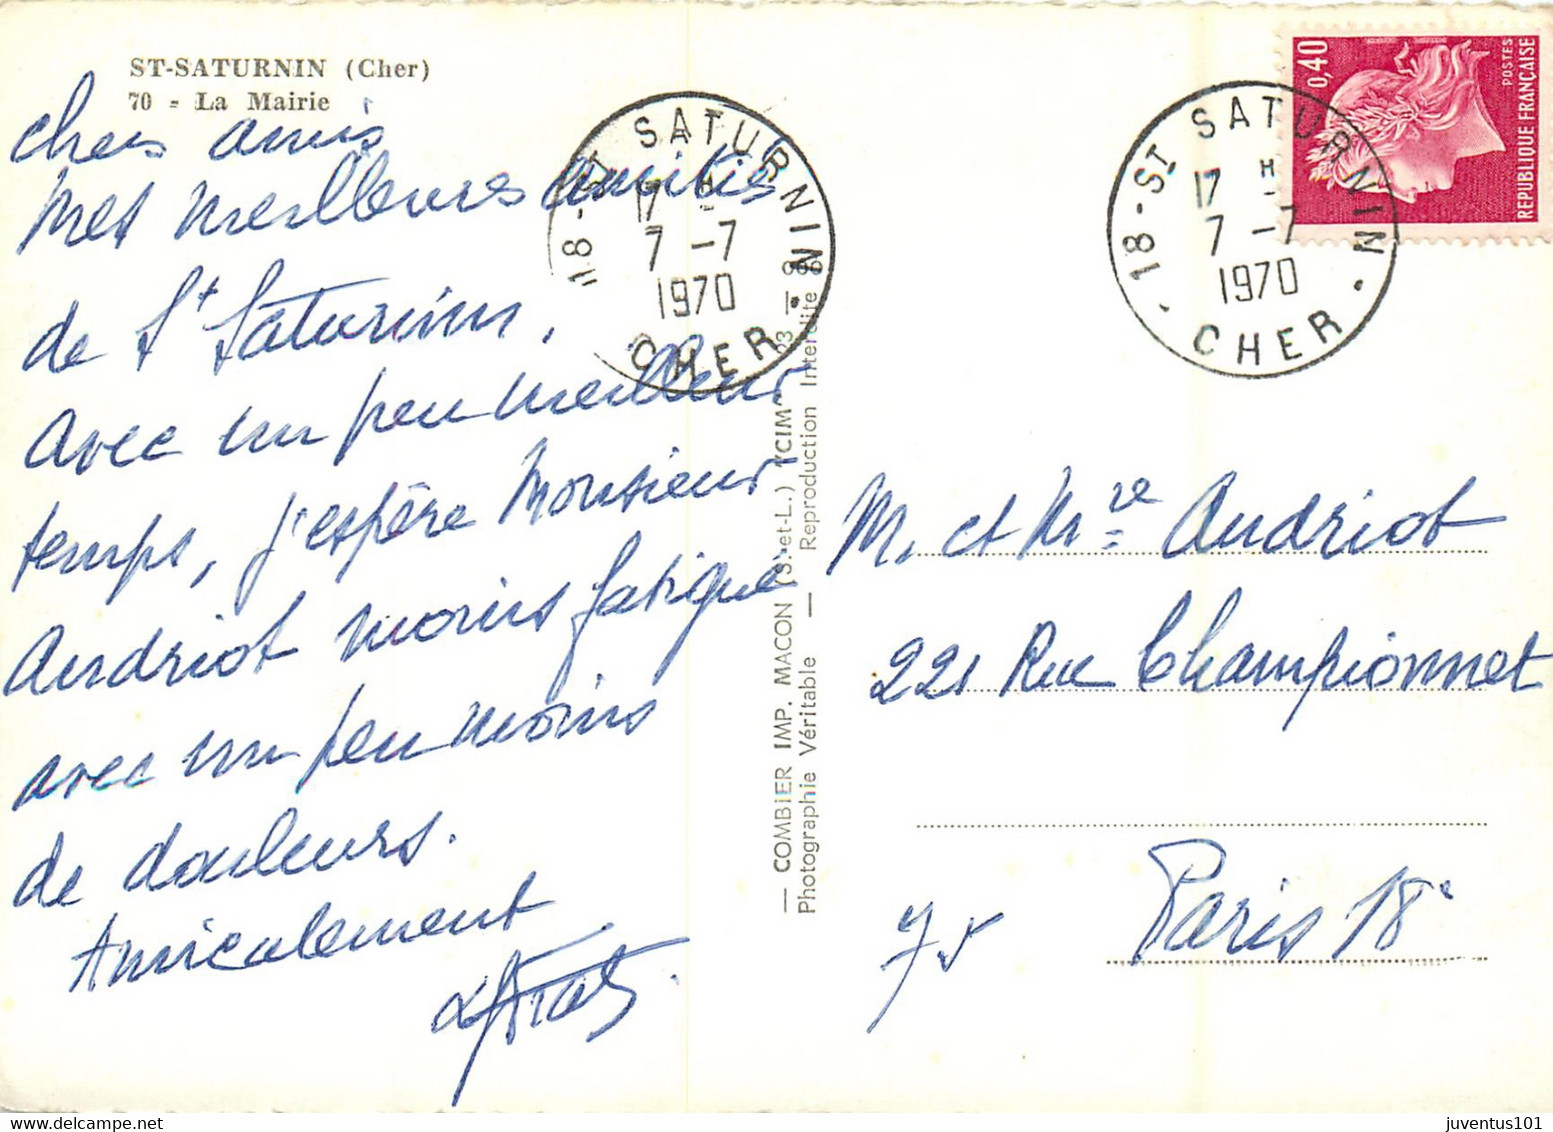 ST-SATURNIN (Cher)
70 - La Mairie
chers amis
mes meilleures amitiés
de St Saturnin,
avec un peu meilleur
temps, j'espère Monsieur
Andriot moins fatigué
avec un peu moins
de douleurs.
Amicalement
18 - ST SATURNIN
17 H
7 - 7
1970
CHER
— COMBIER IMP. MACON (S.-et-L.) "CIM"
Photographie Véritable — Reproduction Interdite
18 - ST SATURNIN
17 H
7 - 7
1970
CHER
0,40
POSTES
REPUBLIQUE FRANÇAISE
M. et Mme Andriot
221 Rue Championnet
75 Paris 18e
juventus101